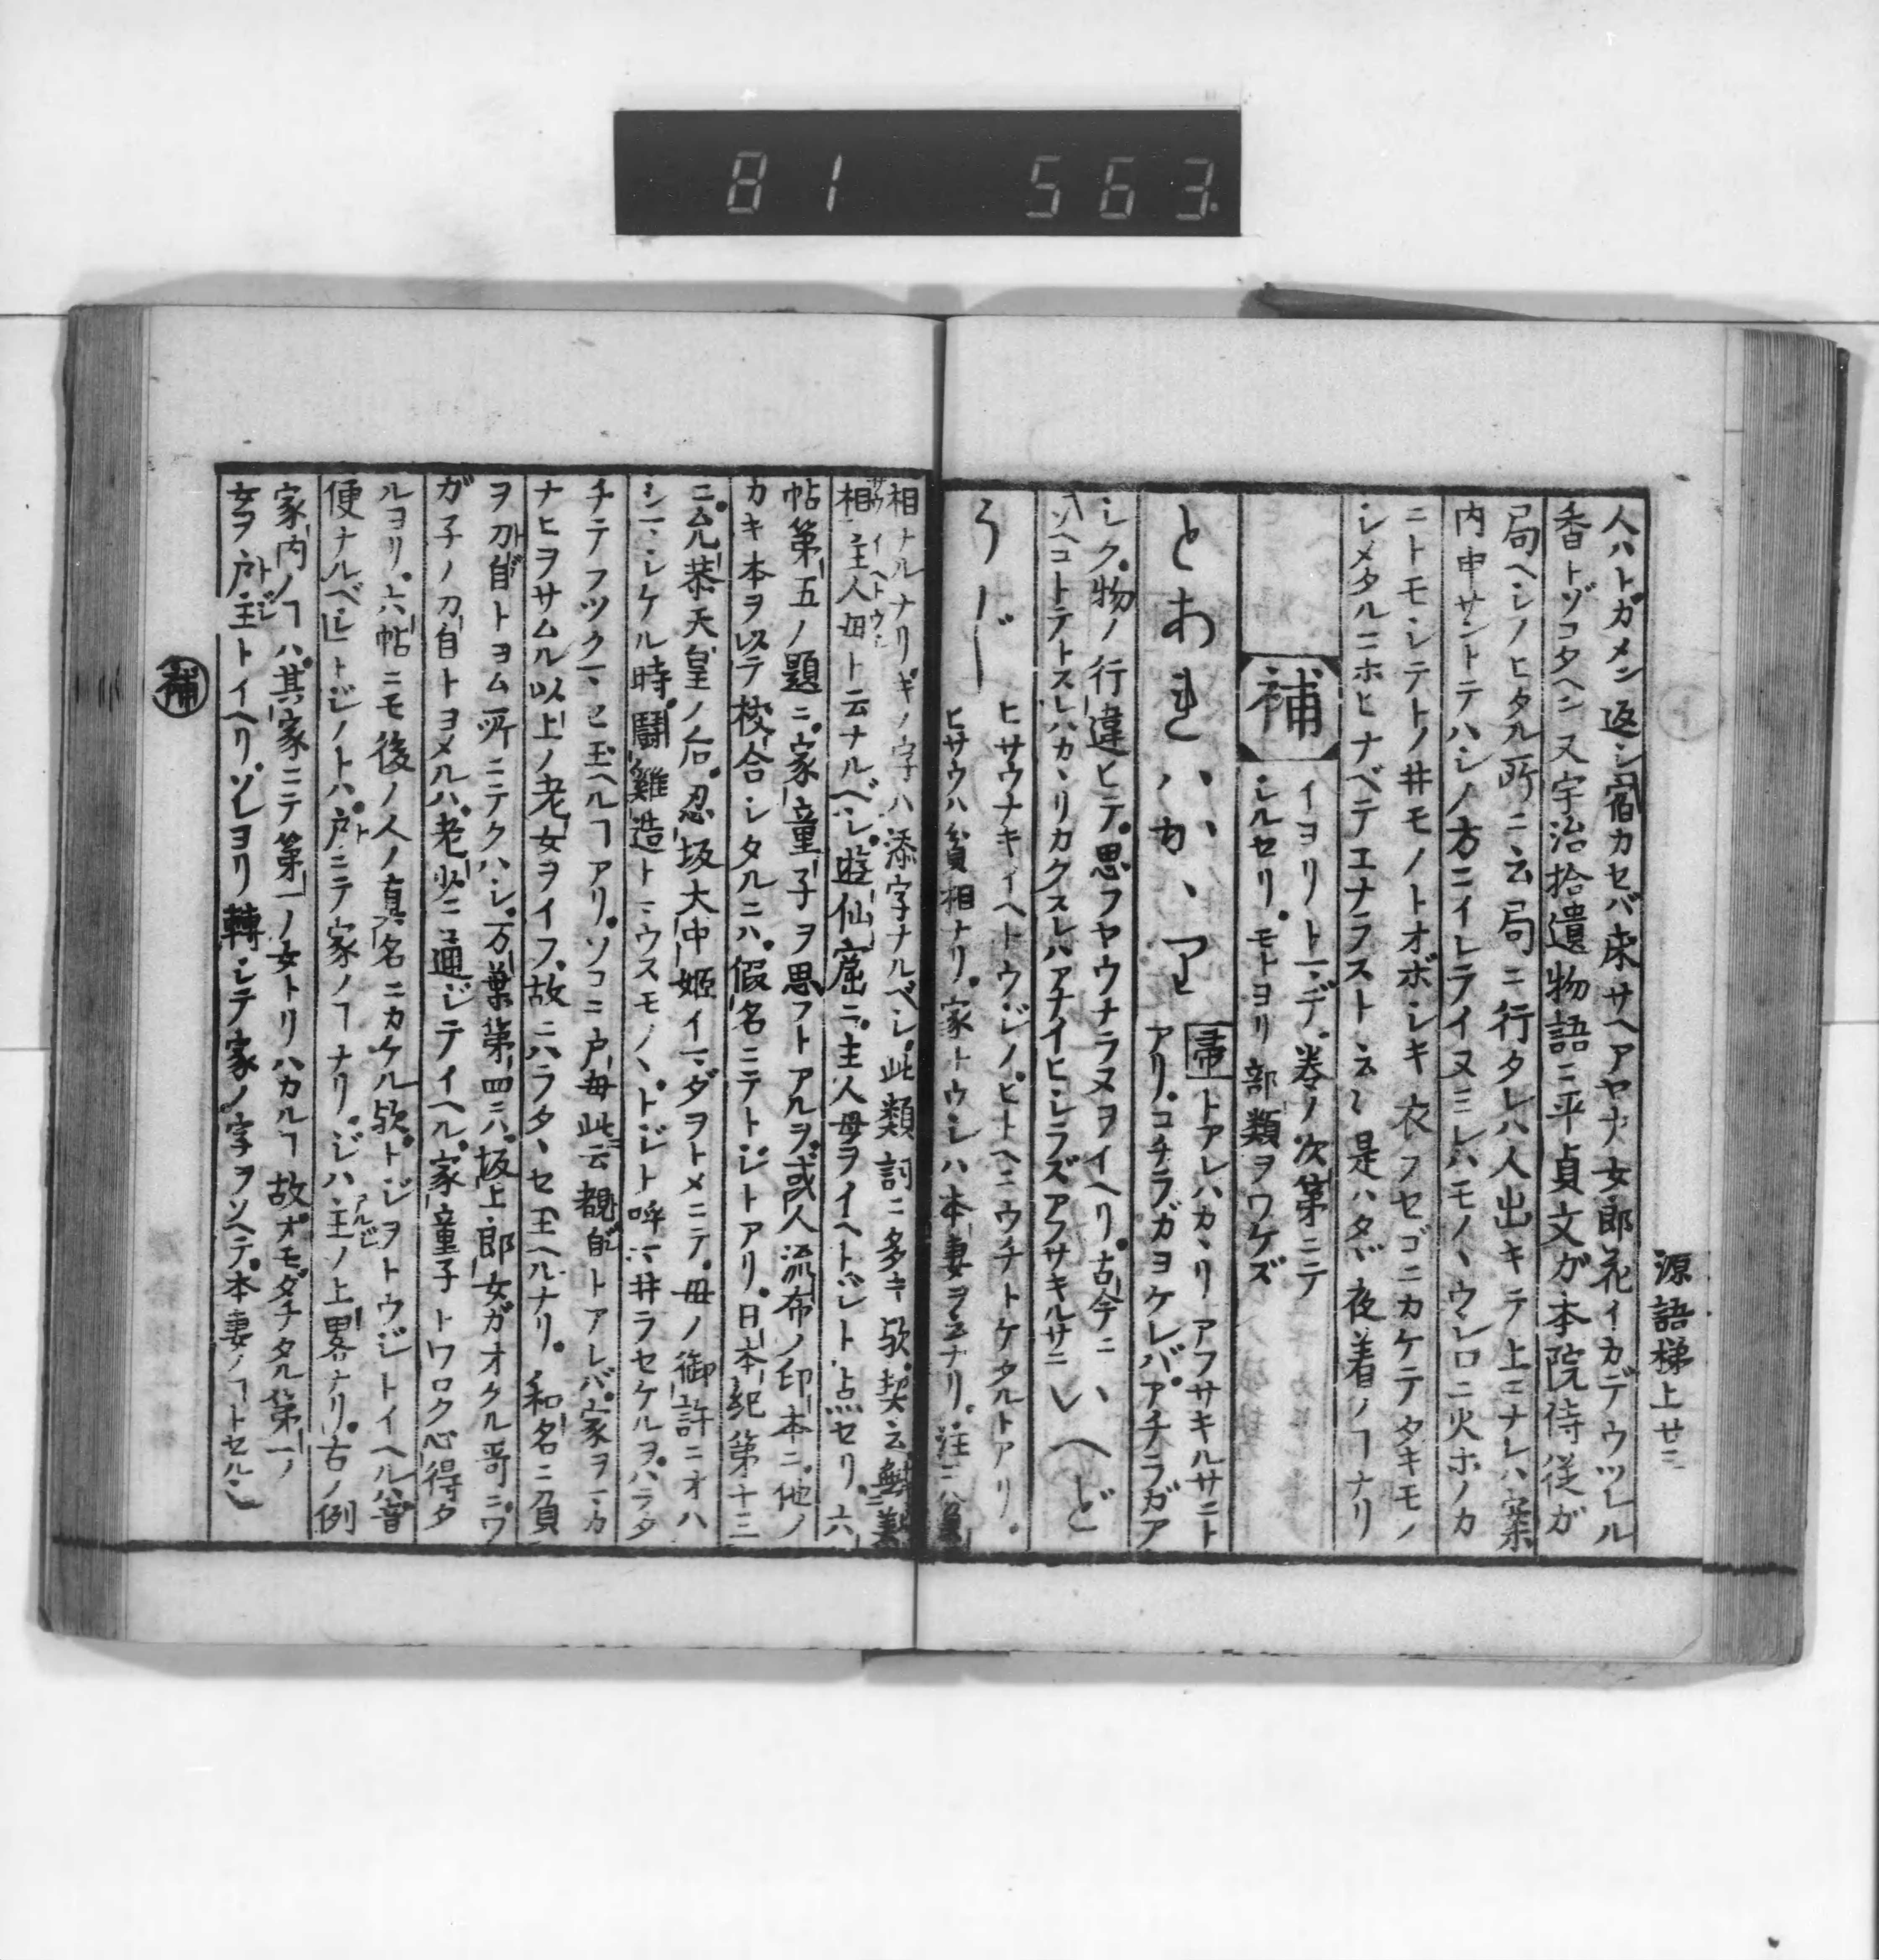 81 563.
源語梯上 廿三
人ハトガメン返シ宿カセバ床サヘアヤナ女郎花イカデウツレル
香トゾコタヘン又宇治拾遺物語ニ平貞文ガ本院侍従ガ
局ヘシノヒタル所ニ云局ニ行タレハ人出キテ上ニナレハ案
内申サントテハシノ方ニイレテイヌミレハモノヽウシロニ火ホノカ
ニトモシテトノ井モノトオボシキ衣フセゴニカケテタキモノ
シメタルニホヒナベテエナラスト云〻是ハタヾ夜着ノヿナリ
補
イヨリトマデ。巻ノ次第ニテ
シルセリ。モトヨリ部類ヲワケズ
とあれハかゝり
帚 トアレハカヽリ アフサキルサニト
アリ。コチラガヨケレバ。アチラガア
シク。物ノ行違ヒテ。思フヤウナラヌヲイヘリ。古今ニ
ソヘコトテトスレハカヽリカクスレハアナイヒシラズアフサキルサニ
いへど
うじ
ヒサウナキイヘトウジノ。ヒトヘニウチトケタルトアリ。
ヒサウハ貧相ナリ。家トウシハ本妻ヲ云ナリ。注ニハ
相ナルナリ。ギノ字ハ添字ナルベシ。此類詞ニ多キ歟。契云。無美
相サウ主人母イヘトウジト云ナルベシ。遊仙窟ニ。主人母ヲイヘトジト点セリ。六
帖第五ノ題ニ。家童子ヲ思フトアルヲ。或人流布ノ印本ニ。他ノ
カキ本ヲ以テ校合シタルニハ。假名ニテトジトアリ。日本紀第十三
ニ。允恭天皇ノ后。忍坂大中姫イマダヲトメニテ。母ノ御許ニオハ
シマシケル時。闘雞造トマウスモノヽ。トジト呼マ井ラセケルヲ。ハラタ
チテフツクマヒ玉ヘルヿアリ。ソコニ戸母此云覩自トアレバ。家ヲマカ
ナヒヲサムル以上ノ老女ヲイフ。故ニハラタヽセ玉ヘルナリ。和名ニ負
ヲ刀自トヨム所ニテクハシ。万葉第四ニハ。坂上郎女ガオクル哥ニ。ワ
ガ子ノ刀自トヨメルハ。老少ニ通ジテイヘル。家童子トワロク心得タ
ルヨリ。六帖ニモ後ノ人ノ真名ニカケル歟。トジヲトウジトイヘルハ。音
便ナルベシ トジノトハ。戸ニテ家ノヿナリ。ジハ主アルジノ上畧ナリ。古ノ例
家内ノヿハ。其家ニテ第一ノ女トリハカルヿ故。オモダチタル第一ノ
女ヲ戸主トジトイヘリ。ソレヨリ轉シテ家ノ字ヲソヘテ。本妻ノヿトセル也
補